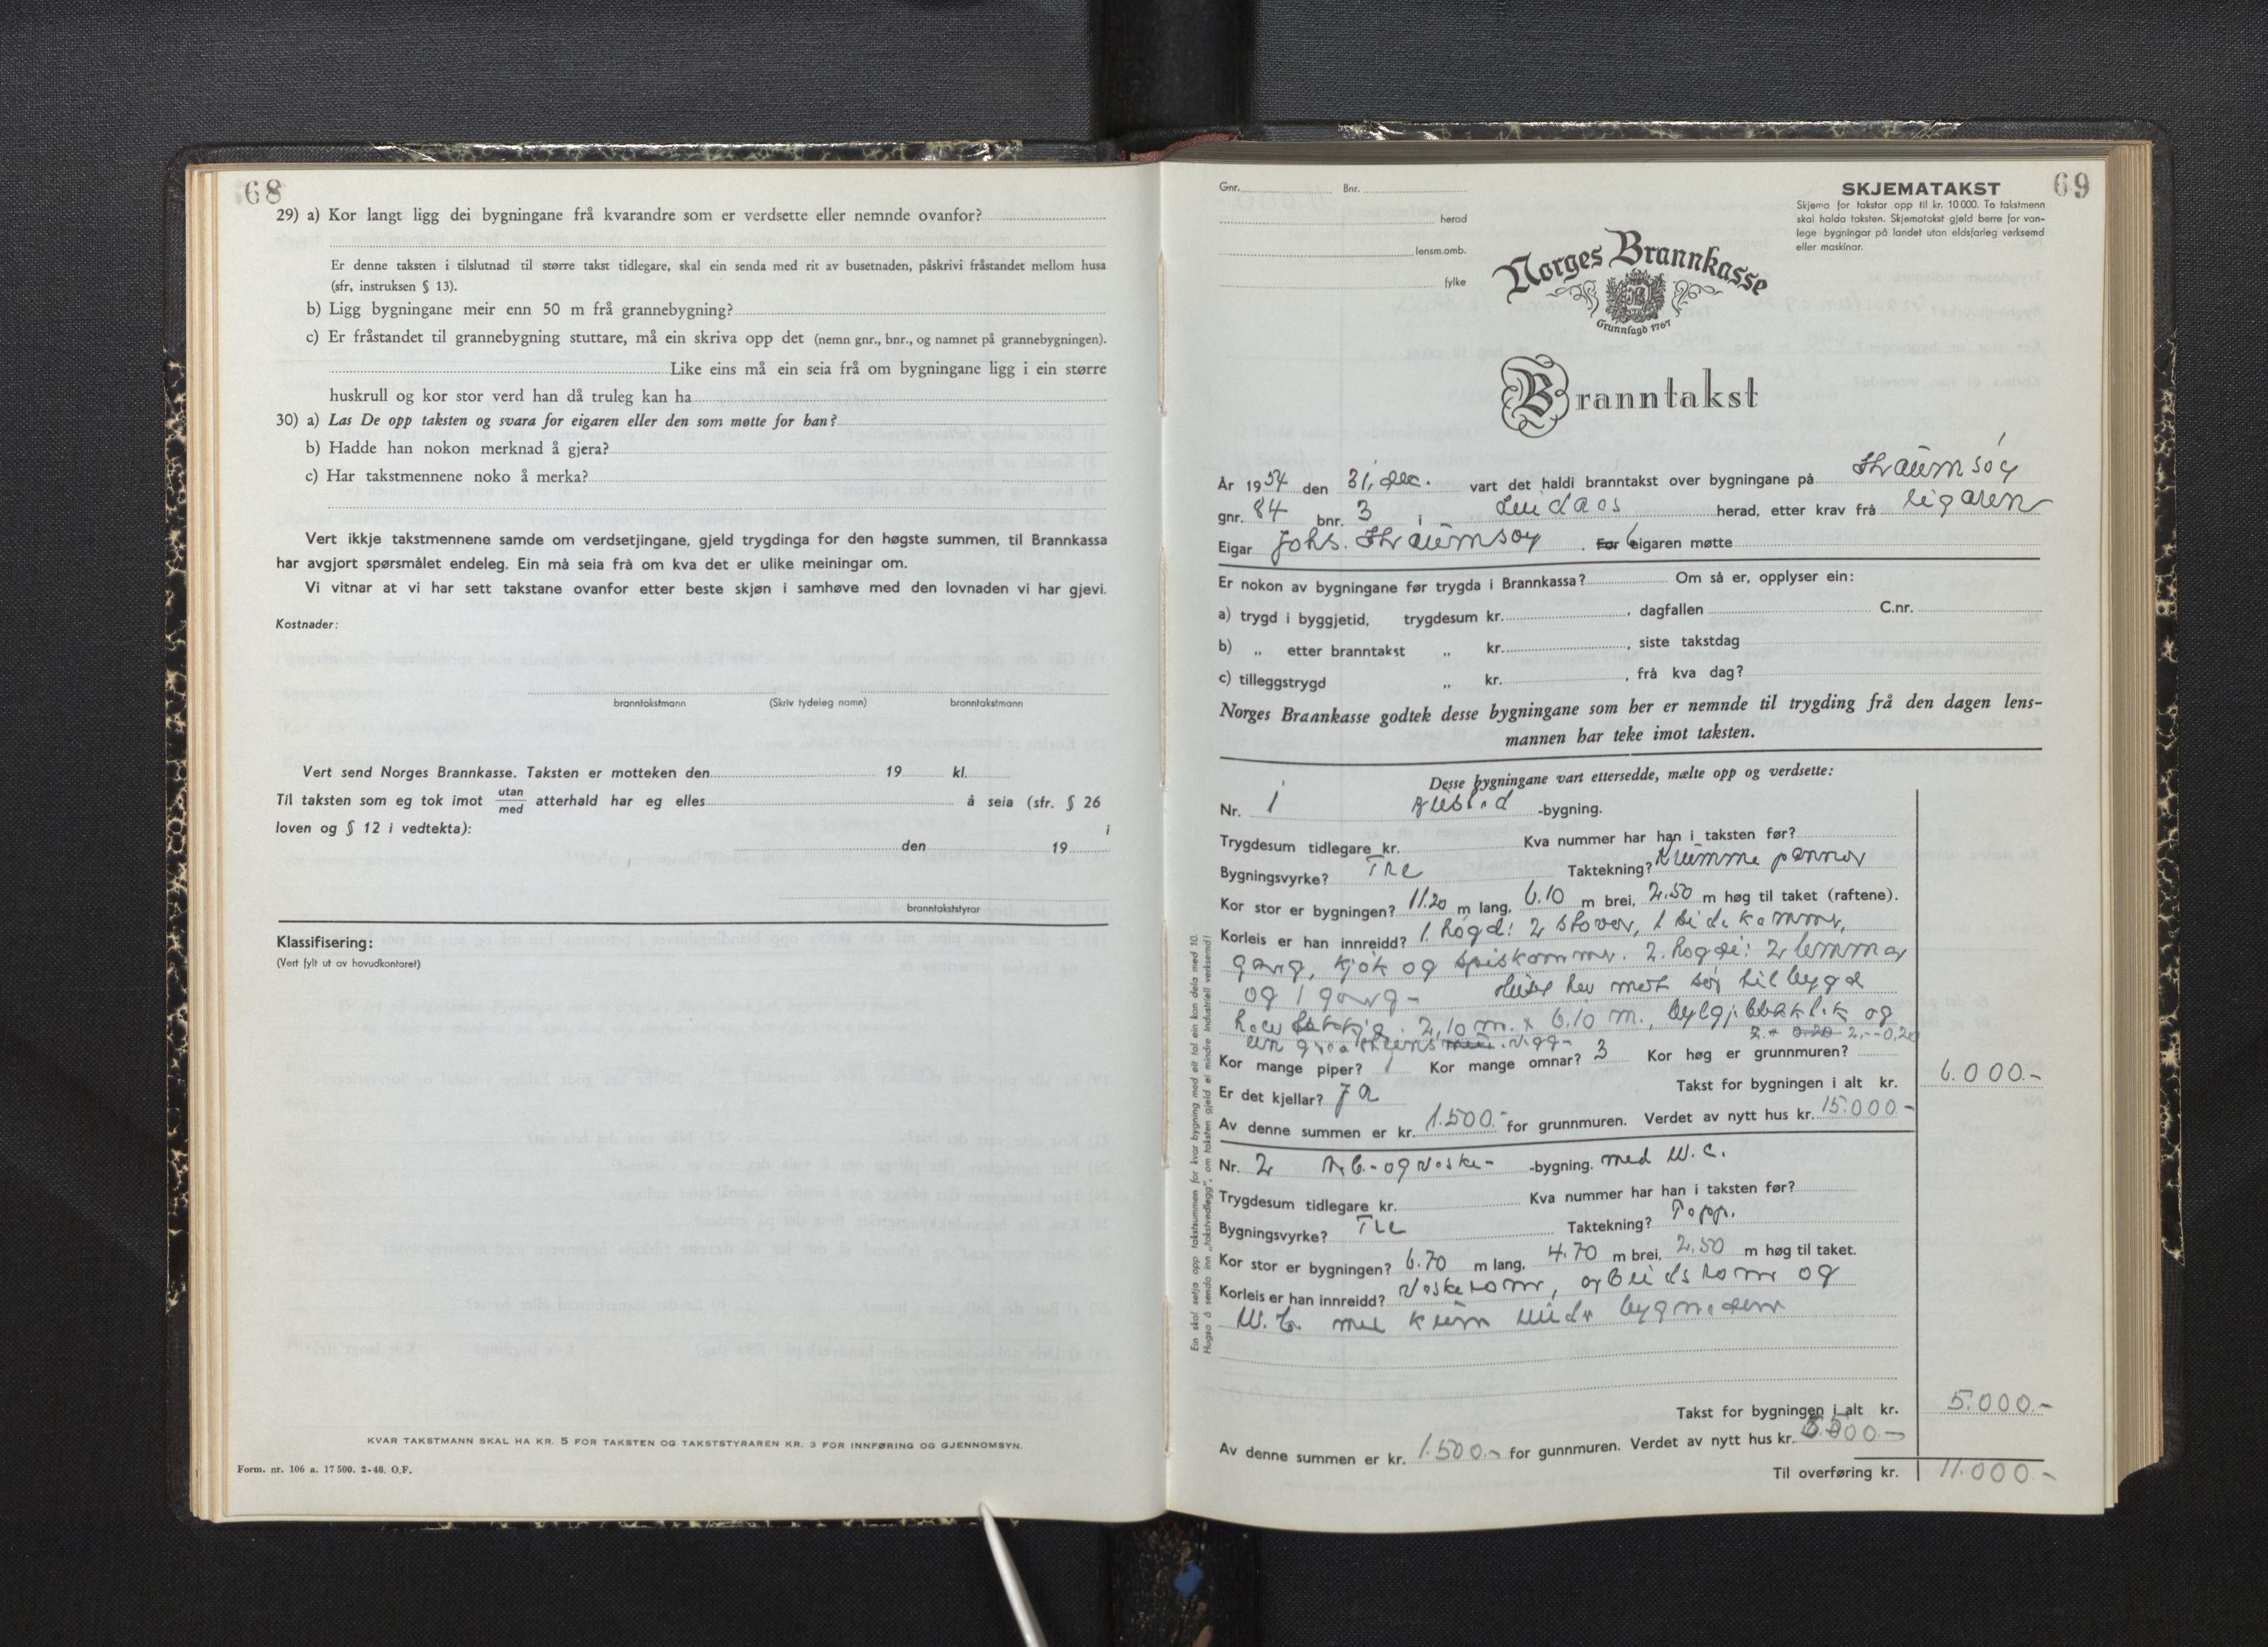 68
29) a) Kor langt ligg dei bygningane frå kvarandre som er verdsette eller nemnde ovanfor?
Er denne taksten i tilslutnad til større takst tidlegare, skal ein senda med rit av busetnaden, påskrivi fråstandet mellom husa
(sfr, instruksen § 13).
b) Ligg bygningane meir enn 50 m frå grannebygning?
c) Er fråstandet til grannebygning stuttare, må ein skriva opp det (nemn gnr., bnr., og namnet på grannebygningen).
Like eins må ein seia frå om bygningane ligg i ein større
huskrull og kor stor verd han då truleg kan ha
30) a) Las De opp taksten og svara for eigaren eller den som møtte for han?
b) Hadde han nokon merknad å gjera?
c) Har takstmennene noko å merka?
Vert ikkje takstmennene samde om verdsetjingane, gjeld trygdinga for den høgste summen, til Brannkassa
har avgjort spørsmålet endeleg. Ein må seia frå om kva det er ulike meiningar om.
Vi vitnar at vi har sett takstane ovanfor etter beste skjøn i samhøve med den lovnaden vi har gjevi.
Kostnader:
branntakstmann (Skriv tydeleg namn) branntakstmann
Vert send Norges Brannkasse. Taksten er motteken den 19 kl.
Til taksten som eg tok imot utan/med atterhald har eg elles å seia (sfr. § 26
loven og § 12 i vedtekta):
den 19
branntakststyrar
Klassifisering:
(Vert fylt ut av hovudkontoret)
KVAR TAKSTMANN SKAL HA KR. 5 FOR TAKSTEN OG TAKSTSTYRAREN KR. 3 FOR INNFØRING OG GJENNOMSYN.
Form. nr. 106 a. 17 500. 2-48. O.F.
69
Gnr. Bnr.
herad
lensm.omb.
fylke
SKJEMATAKST
Skjema for takstar opp til kr. 10 000. To takstmenn
skal halda taksten. Skjematakst gjeld berre for van-
lege bygningar på landet utan eldsfarleg verksemd
eller maskinar.
Norges Brannkasse
Grunnlagd 1767
Branntakst
År 1954 den 31, des. vart det haldi branntakst over bygningane på Straumsøy
gnr. 84 bnr. 3 i Lindaas herad, etter krav frå eigaren
Eigar Johs. Straumsøy . For Eigaren møtte
Er nokon av bygningane før trygda i Brannkassa? Om så er, opplyser ein:
a) trygd i byggjetid, trygdesum kr. , dagfallen C.nr.
b) „ etter branntakst „ kr. , siste takstdag
c) tilleggstrygd „ kr. , frå kva dag?
Norges Braankasse godtek desse bygningane som her er nemnde til trygding frå den dagen lens-
mannen har teke imot taksten.
Desse bygningane vart ettersedde, mælte opp og verdsette:
Nr. 1 Bustad -bygning.
Trygdesum tidlegare kr. Kva nummer har han i taksten før?
Bygningsvyrke? Tre Taktekning? Krumme pannor
Kor stor er bygningen? 11.20 m lang, 6.10 m brei, 2.50 m høg til taket (raftene).
Korleis er han innreidd? 1. høgd: 2 stover, 1 sidekammer,
gang, kjøk og spiskammer. 2. høgde: 2 lemmar
og 1 gang - Huset hev mot sør tilbygd
2,10 m. x 6.10 m., og
2,--0,20
Kor mange piper? 1 Kor mange omnar? 3 Kor høg er grunnmuren?
Er det kjellar? Ja Takst for bygningen i alt kr. 6.000.-
Av denne summen er kr. 1.500.- for grunnmuren. Verdet av nytt hus kr. 15.000.-
Nr. 2 Arb.- og vaske- -bygning. med W.C.
Trygdesum tidlegare kr. Kva nummer har han i taksten før?
Bygningsvyrke? Tre Taktekning? Papp.
Kor stor er bygningen? 6.70 m lang, 4.70 m brei, 2,50 m høg til taket.
Korleis er han innreidd? Vaskerom, arbeidsrom og
W.C. med kum under bygnaden
Takst for bygningen i alt kr. 5.000.-
Av denne summen er kr. 1.500.- for gunnmuren. Verdet av nytt hus kr.
Til overføring kr. 11.000.-
Ein skal setja opp takstsummen for kvar bygning med eit tal ein kan dela med 10.
Hugsa å senda inn „takstvedlegg", om taksten gjeld ei mindre industriell verksemd!